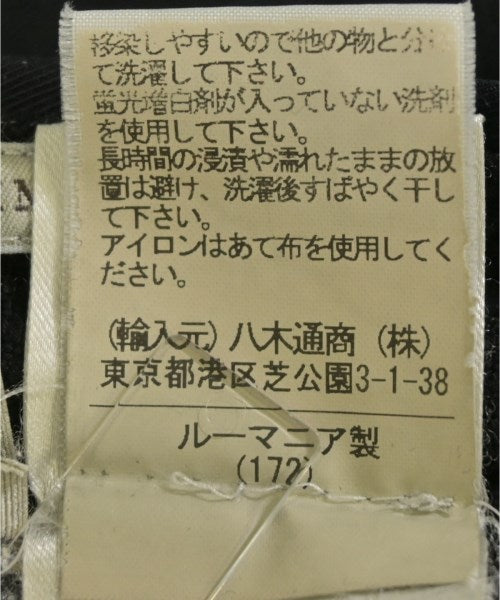 移染しやすいので他の物と分け
て洗濯して下さい。
蛍光増白剤が入っていない洗剤
を使用して下さい。
長時間の浸漬や濡れたままの放
置は避け、洗濯後すばやく干し
て下さい。
アイロンはあて布を使用してく
ださい。
(輸入元) 八木通商 (株)
東京都港区芝公園3-1-38
ルーマニア製
(172)